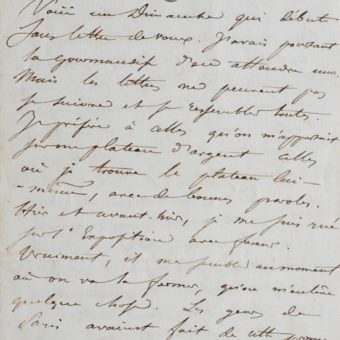 Voici un Dimanche qui débute
sans lettre de vous. J'avais pourtant
la gourmandise d'en attendre une.
Mais les lettres ne peuvent pas
se suivre et se ressembler toutes.
Je préfère à celles qu'on m'apportait
sur un plateau d'argent celles
où je trouve le plateau lui-
-même, avec de bonnes paroles.
Hier et avant-hier, je me suis rué
sur l'Exposition avec fureur.
Vraiment, il me semble au moment
où on va la fermer, qu'on m'enlève
quelque chose. Les gens de
Paris avaient fait de cette